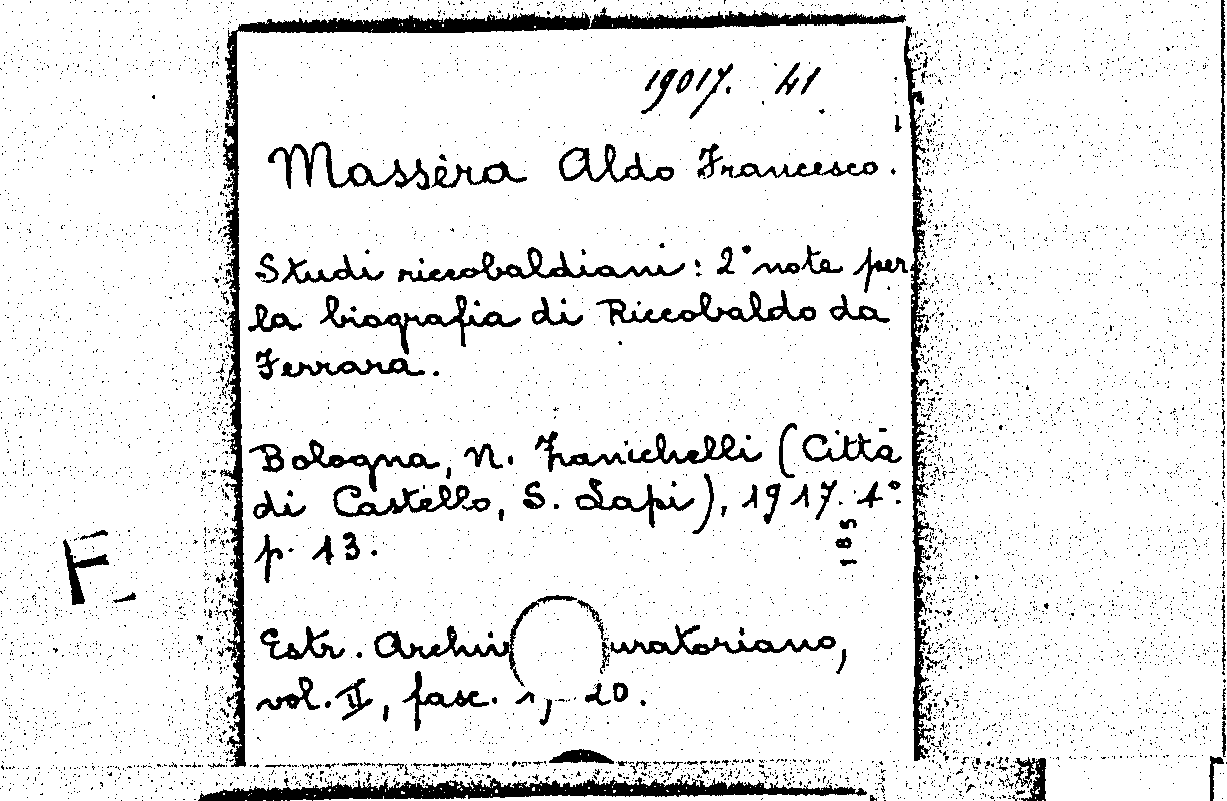 19017. 41
Massèra Aldo Francesco.
Studi riccobaldiani: 2° note per
la biografia di Riccobaldo da
Ferrara.
Bologna, N. Zanichelli (Città
di Castello, S. Lapi), 1917. 4°.
p. 13.
185
F.
Estr. Archivi uratoriano,
vol. II, fasc. 1, 20.